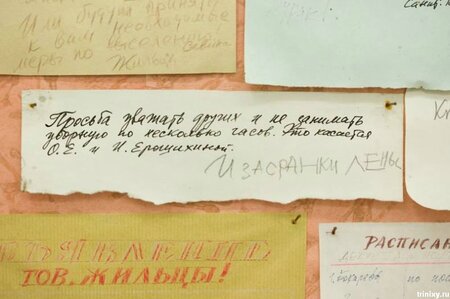 Или будут приняты
к вам необходимые
меры по выселению
Жильцы
Просьба уважать других и не занимать
уборную по несколько часов. Это касается
О.Е. и И. Ерощихиной.
И ЗАСРАНКИ ЛЕНЫ
ОБЪЯВЛЕНИЕ
ТОВ. ЖИЛЬЦЫ!
РАСПИСАН
по
trinixy.ru